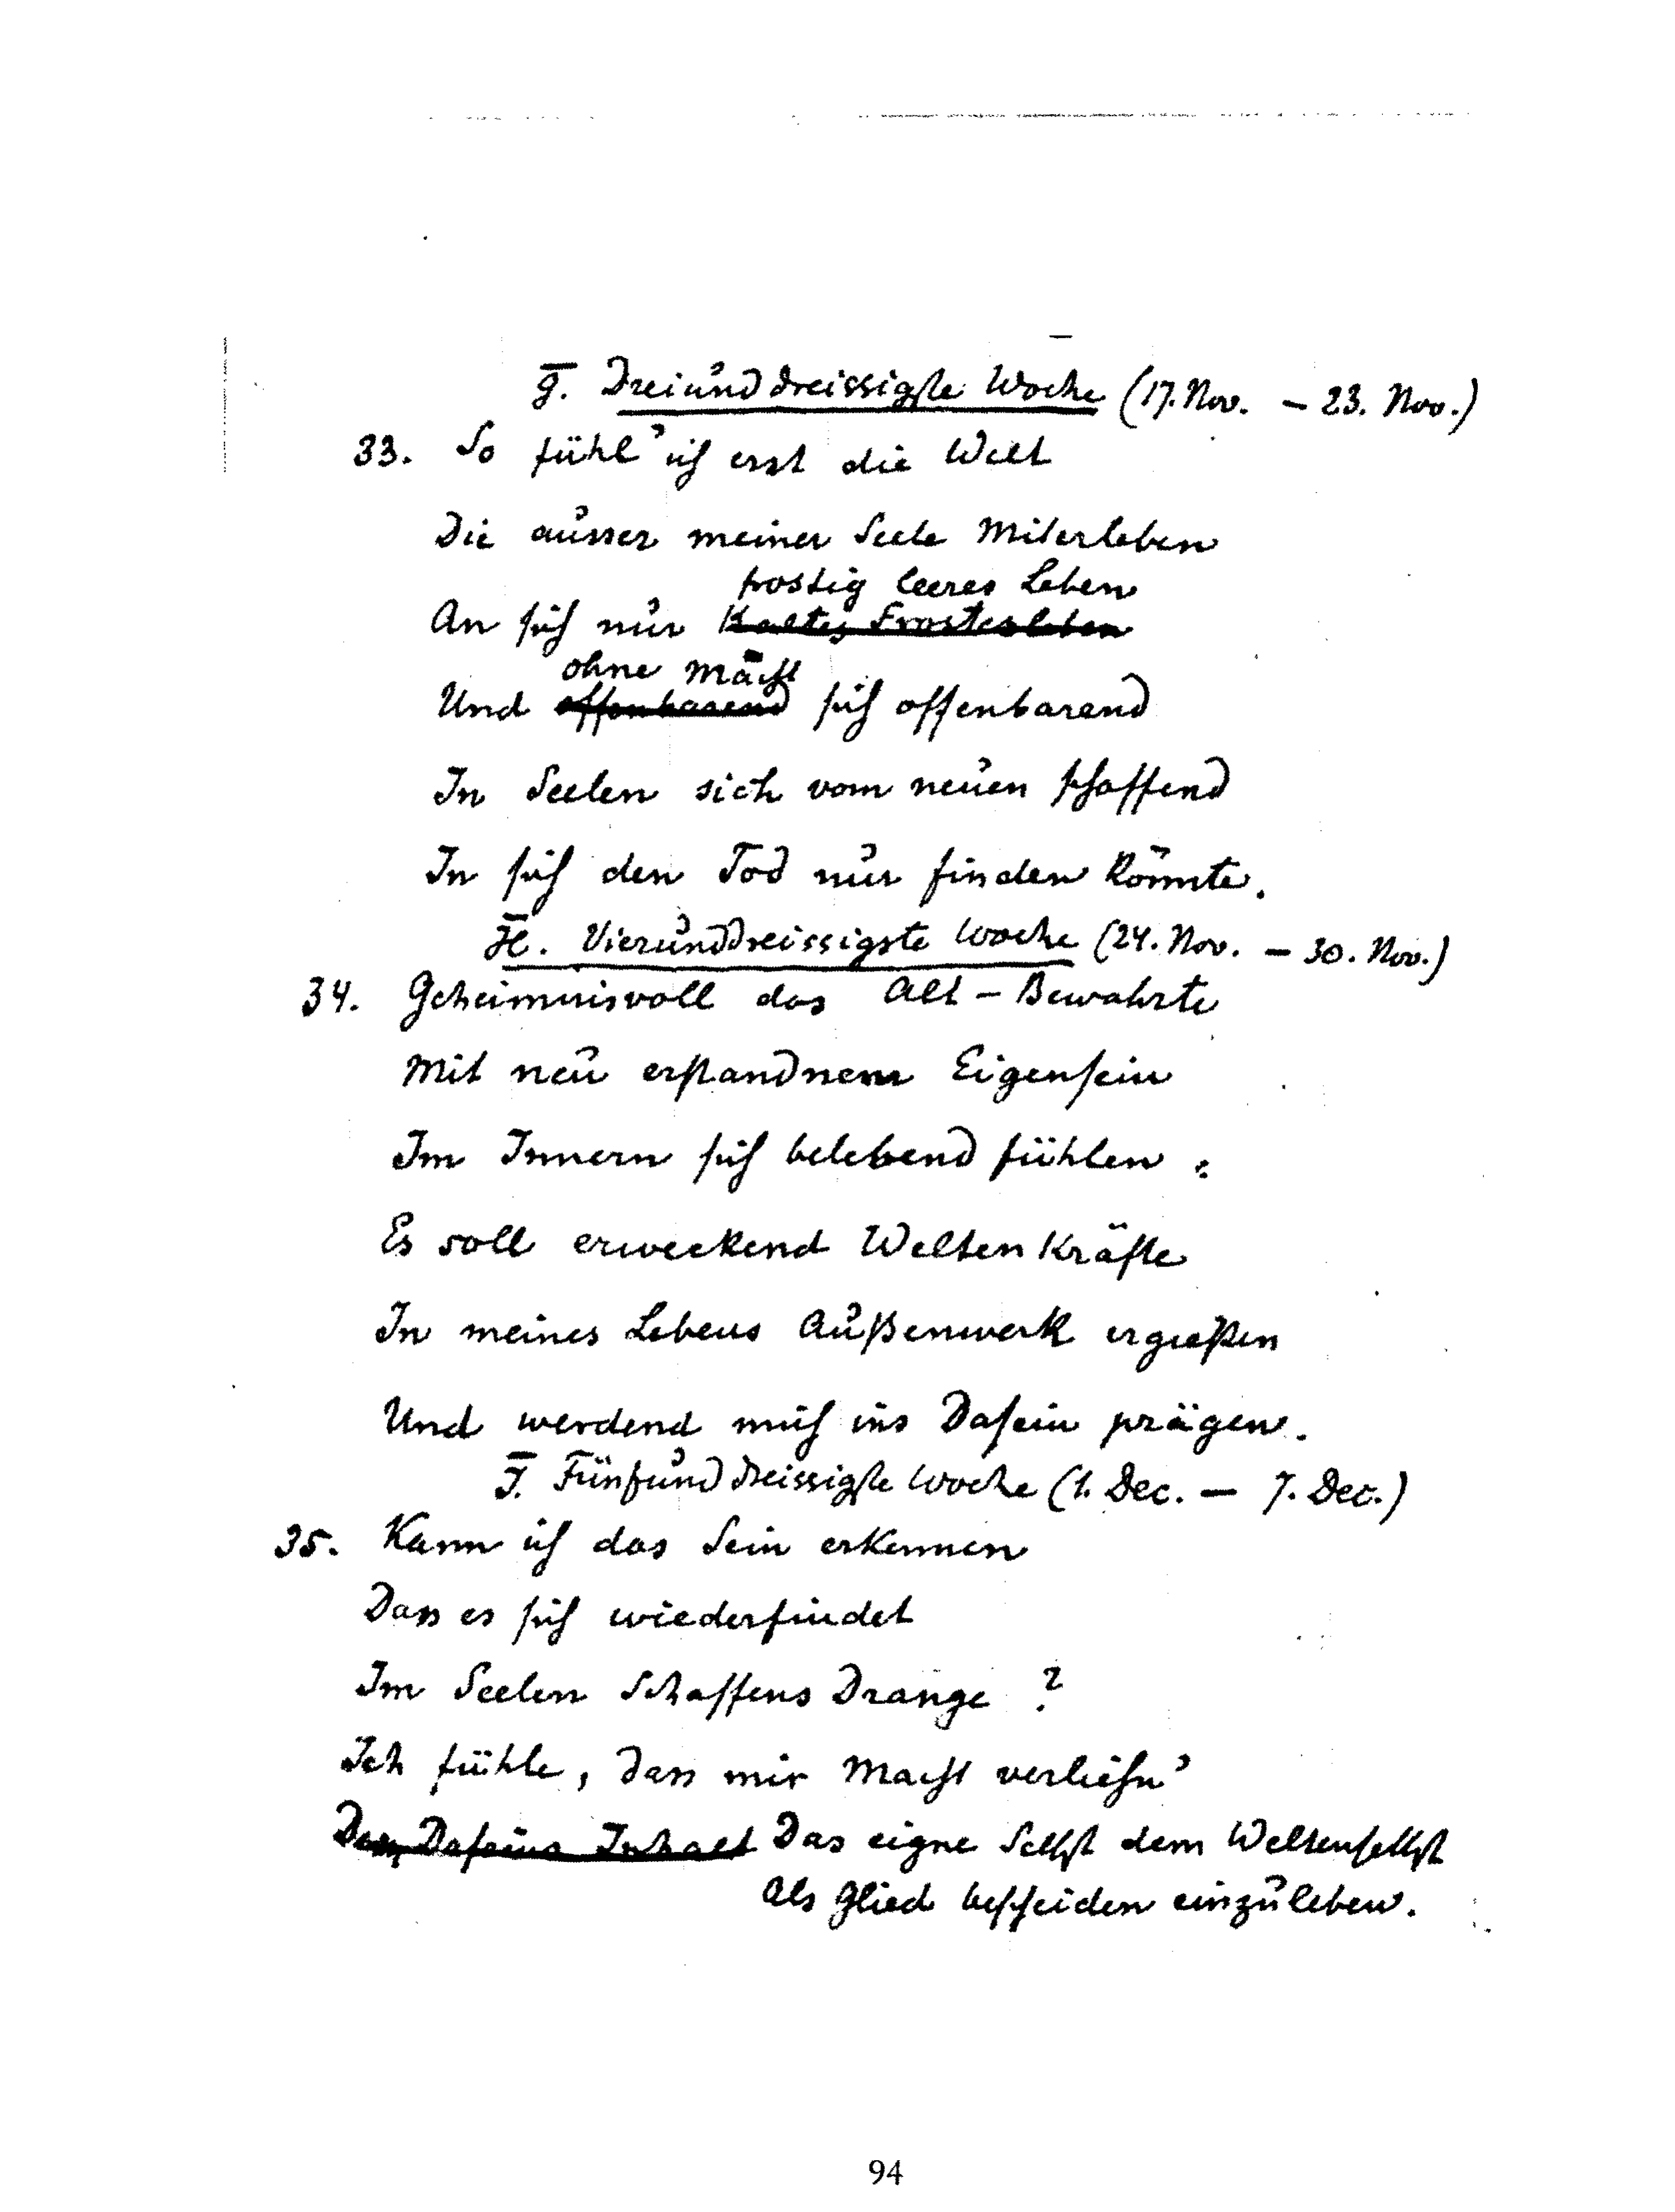 g̅. Dreiunddreissigste Woche (17. Nov. – 23. Nov.)
33. So fühl' ich erst die Welt
Die ausser meiner Seele Miterleben
frostig leeres Leben
An sich nur Kaltes Frostesleben
ohne Macht
Und offenbarend sich offenbarend
In Seelen sich vom neuen schaffend
In sich den Tod nur finden könnte.
H̅. Vierunddreissigste Woche (24. Nov. – 30. Nov.)
34. Geheimnisvoll das Alt – Bewahrte
Mit neu erstandnem Eigensein
Im Innern sich belebend fühlen:
Es soll erweckend Weltenkräfte
In meines Lebens Außenwerk ergießen
Und werdend mich ins Dasein prägen.
J̅. Fünfunddreissigste Woche (1. Dec. – 7. Dec.)
35. Kann ich das Sein erkennen
Dass es sich wiederfindet
Im Seelen Schaffens Drange ?
Ich fühle, dass mir Macht verliehn'
Des Daseins Inhalt Das eigne Selbst dem Weltenselbst
Als Glied bescheiden einzuleben.
94